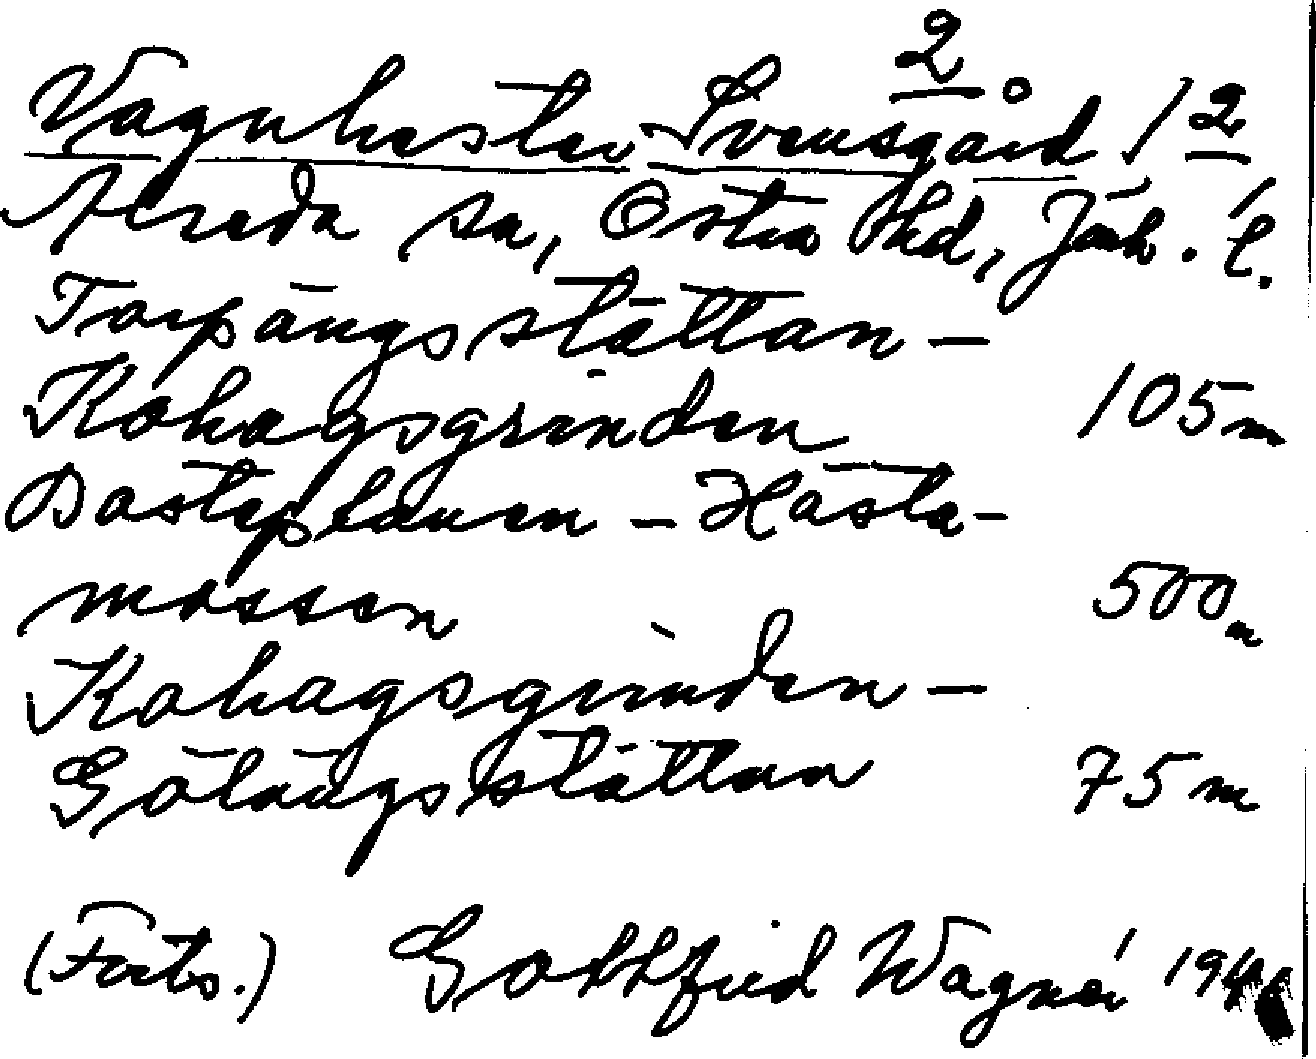 2
Vagnhester Svensgård 1 2
Alseda sn, Östra hd, Jönk. l.
Torpängsstättan –
Kohagsgrinden 105 m
Dasteplanen – Hästa-
mossen 500 m
Kohagsgrinden –
Gölängsstättan 75 m
(Forts.) Gottfrid Wagnér